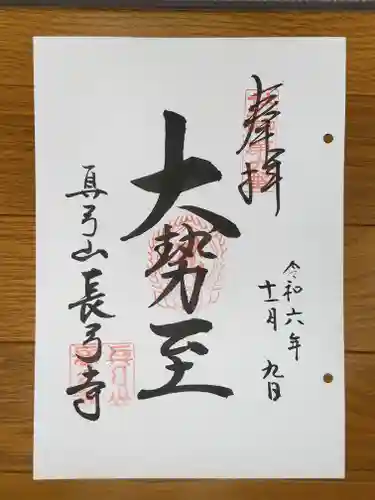 奉拝
令和六年
十一月 九日
大勢至
真弓山長弓寺